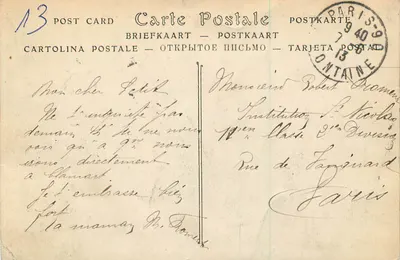 13
POST CARD Carte Postale POSTKARTE
BRIEFKAART — POSTKAART
CARTOLINA POSTALE — ОТКРЫТОЕ ПИСЬМО — TARJETA POSTAL
PARIS-90
9 40
13
FONTAINE
Mon cher Petit
Ne t'inquiète pas
demain si tu ne nous
vois qu'à nous
irons directement
à Clamart
Je t'embrasse bien
fort
ta maman
Monsieur Robert
Institution St Nicolas
Classe Division
Rue de Vaugirard
Paris